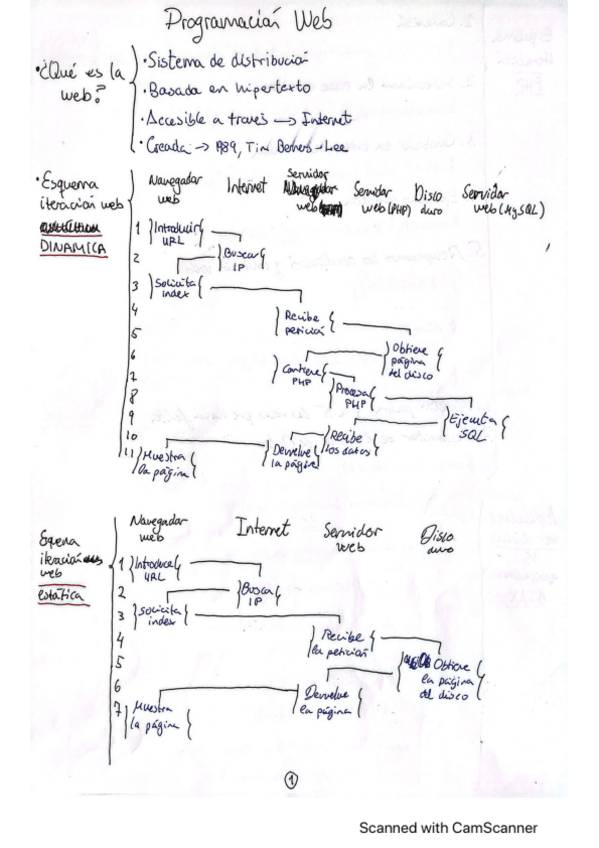 Programación Web
• ¿Qué es la
web?
• Sistema de distribución
• Basada en hipertexto
• Accesible a través → Internet
• Creada → 1989, Tim Berners-Lee
• Esquema
iteración web
DINAMICA
Navegador
web
Internet
Servidor
web
Servidor
web (PHP)
Disco
duro
Servidor
web (MySQL)
1 Introducir
URL
2 Buscar
IP
3 Solicita
index
4 Recibe
petición
5
6 Obtiene
página
del disco
7 Contiene
PHP
8 Procesa
PHP
9 Ejecuta
SQL
10 Recibe
los datos
11 Muestra
la página
Devuelve
la página
Esquema
iteración
web
estática
Navegador
web
Internet
Servidor
web
Disco
duro
1 Introduce
URL
2 Busca
IP
3 Solicita
index
4 Recibe
la petición
5 Obtiene
la página
del disco
6 Devuelve
la página
7 Muestra
la página
1
Scanned with CamScanner